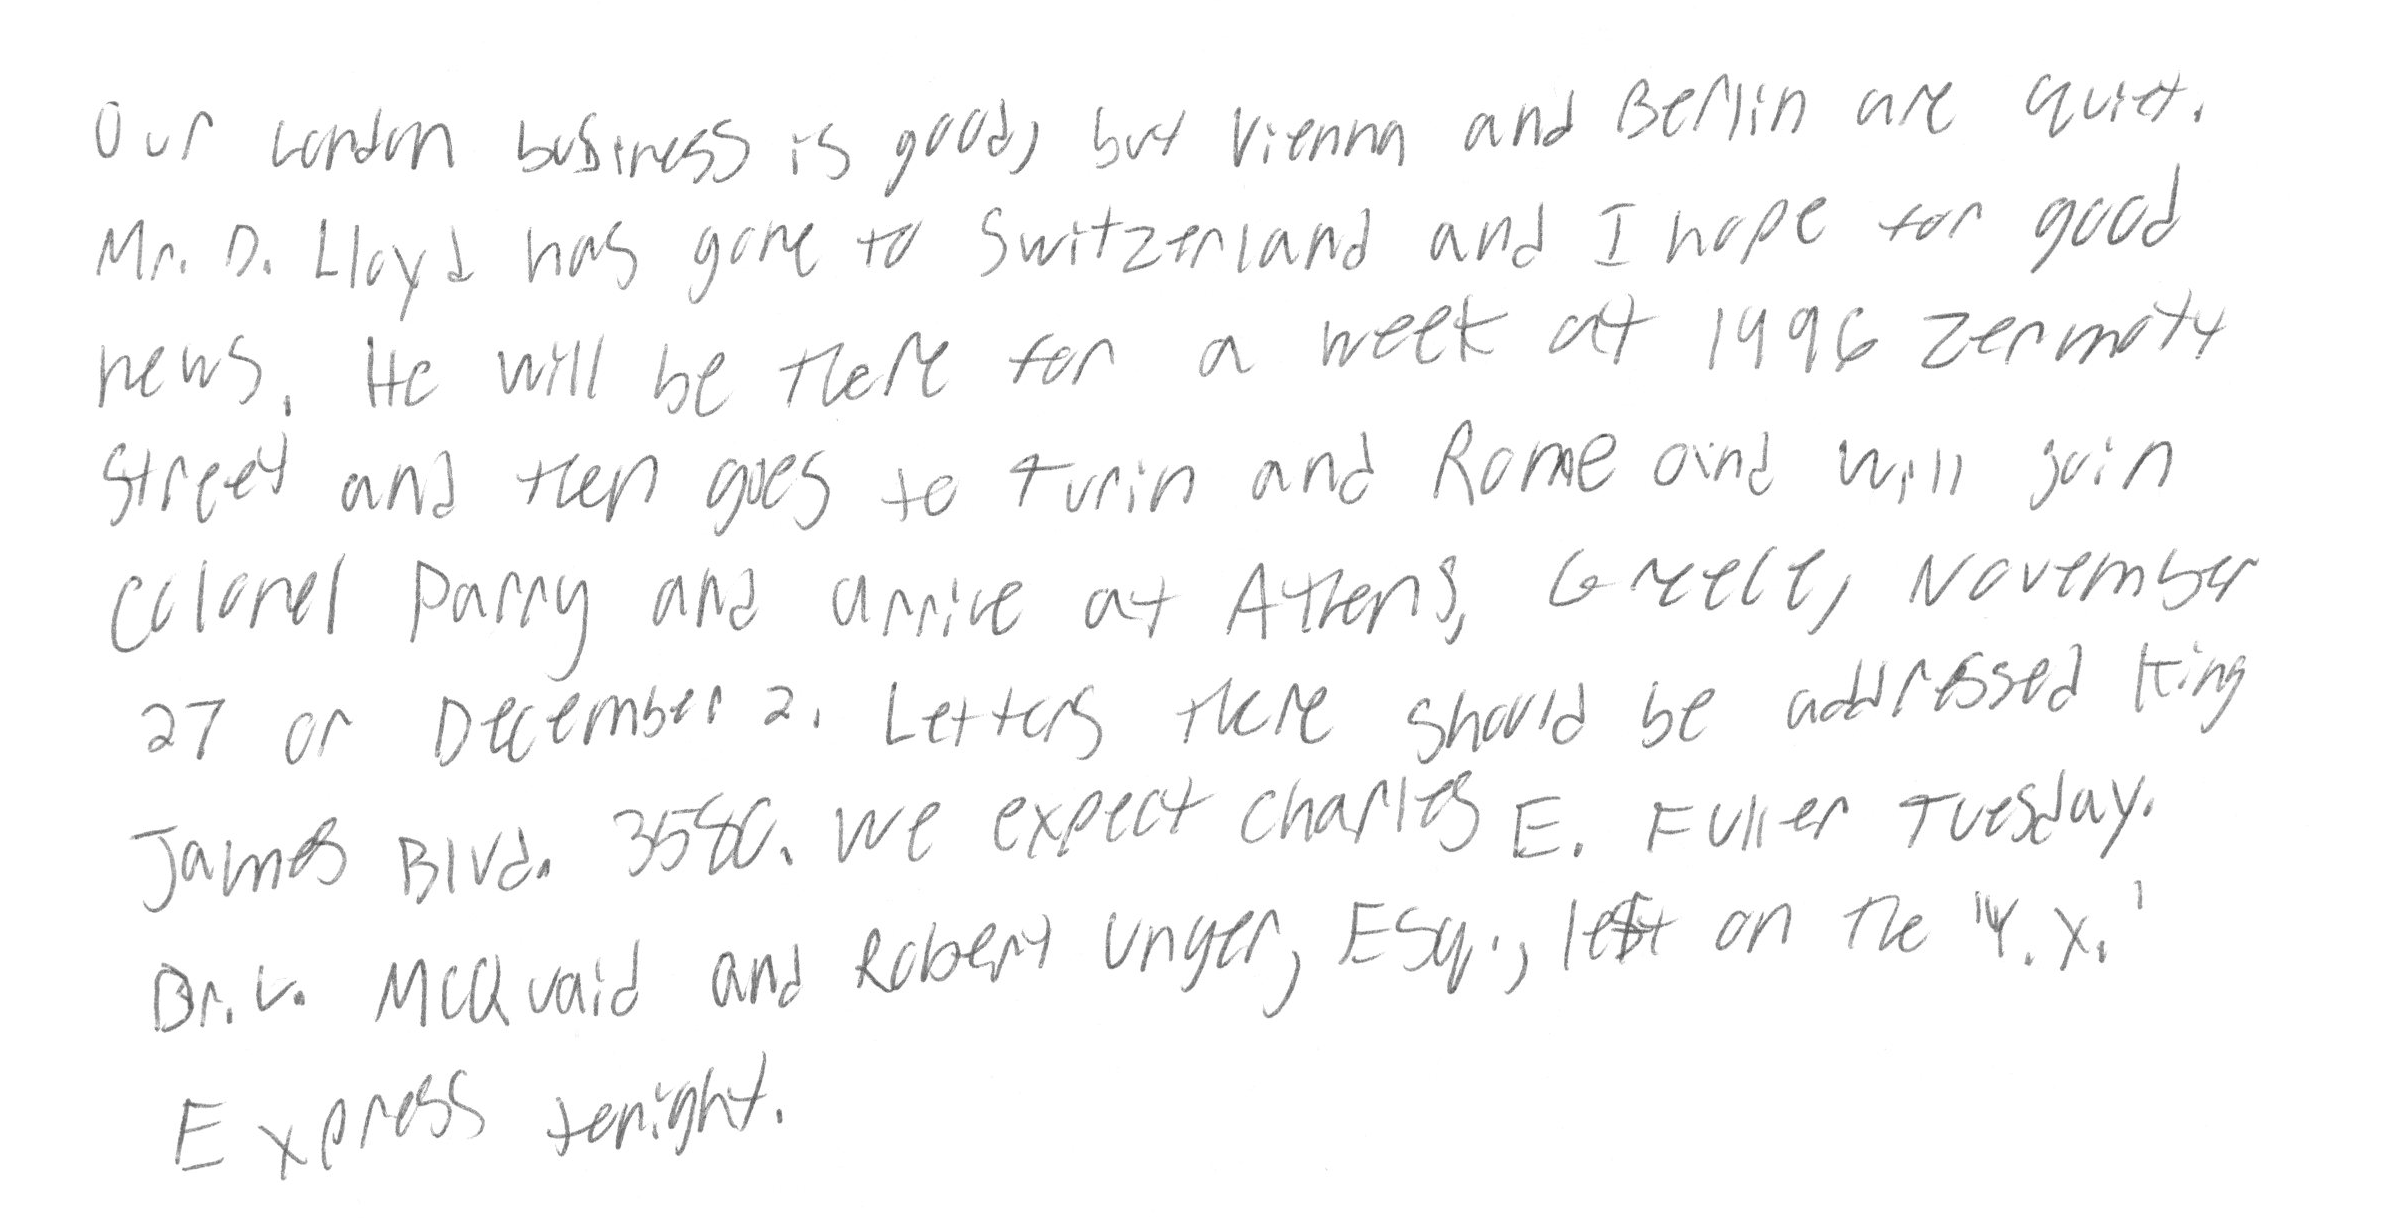 Our London business is good, but Vienna and Berlin are quiet.
Mr. D. Lloyd has gone to Switzerland and I hope for good
news. He will be there for a week at 1996 Zermott
Street and then goes to Turin and Rome and will join
Colonel Parry and arrive at Athens, Greece, November
27 or December 2. Letters there should be addressed King
James Blvd. 3580. We expect Charles E. Fuller Tuesday.
Dr. L. McQuaid and Robert Unger, Esq., left on the "Y.X.'
Express tonight.